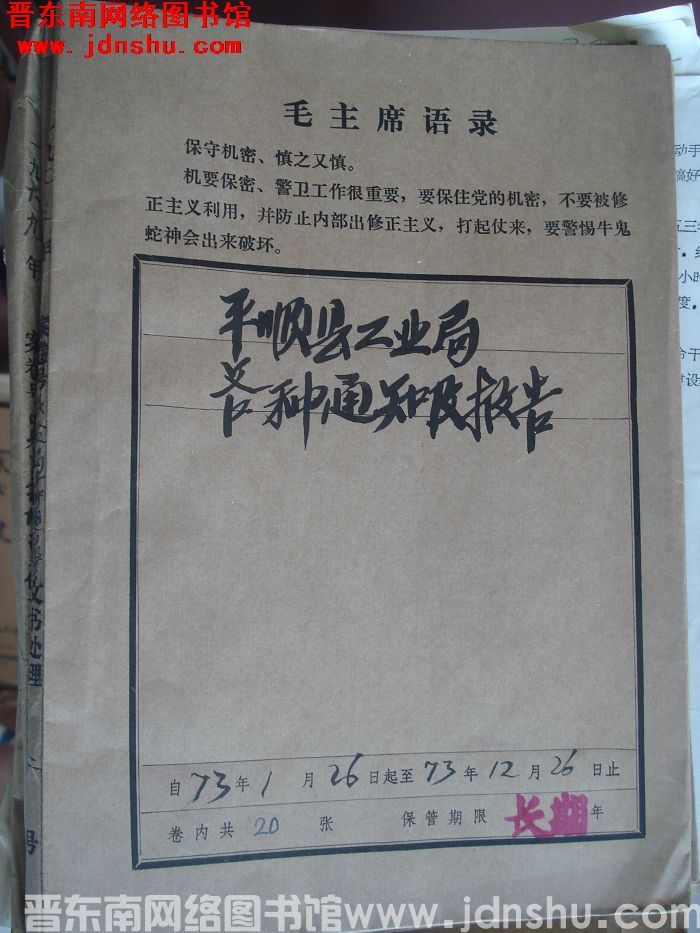 晋东南网络图书馆
www.jdnshu.com
毛主席语录
保守机密、慎之又慎。
机要保密、警卫工作很重要，要保住党的机密，不要被修
正主义利用，并防止内部出修正主义，打起仗来，要警惕牛鬼
蛇神会出来破坏。
平顺县工业局
各种通知及报告
自73年1月26日起至73年12月26日止
卷内共20张 保管期限长期年
一九六九年
文书处理
号
晋东南网络图书馆www.jdnshu.com